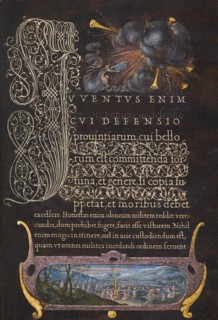 IVVENTVS ENIM
CVI DEFENSIO
prouintiarum, cui bello
rum est committenda for
tuna, et genere, si copia su
ppetat, et moribus debet
excellere. Honestas enim idoneum militem reddit. vere
cundia, dum prohibet fugere, facit esse victorem. Nihil
enim magis in itinere, uel in acie custodiendum est,
quam vt omnes milites incedendi ordinem seruent.